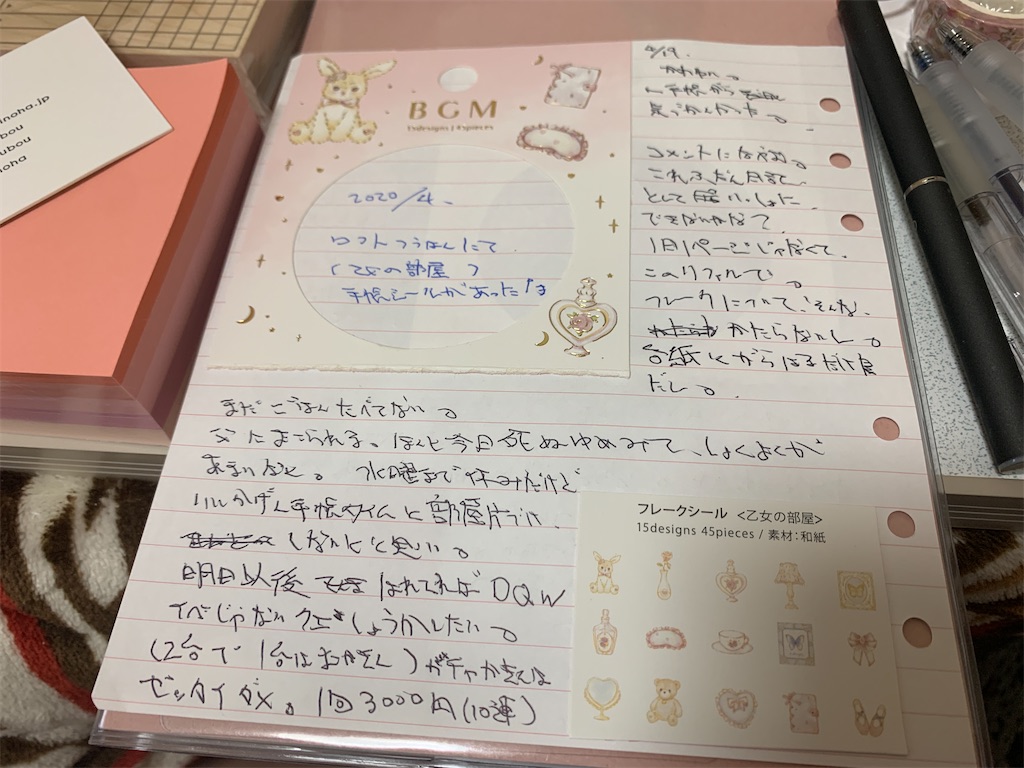 inoha.jp
BGM
15designs 45pieces
2020/4.
ロフトつうはんにて
(乙女の部屋)
手帳シールがあった!
4/19.
コメントになやむ。
これもだん日記
として
できないかな?
1日1ページじゃなくて、
このリフィルで。
フレークについて、そんな、
かたらないし。
台紙とからはるだけ
だし。
まだごはんたべてない。
父におこられる。ほんと今日死ぬゆめみて、しょくよくが
あまいなと。水曜まで休みだけど
いいかげん手帳タイムと部屋片づけ、
しないとと思い。
明日以後 はれてれば DQW
イベじゃないクエしょうかしたい。
(2台で1台はおかあさん)ガチャかきんは
ゼッタイダメ。1回3000円(10連)
フレークシール <乙女の部屋>
15designs 45pieces / 素材:和紙